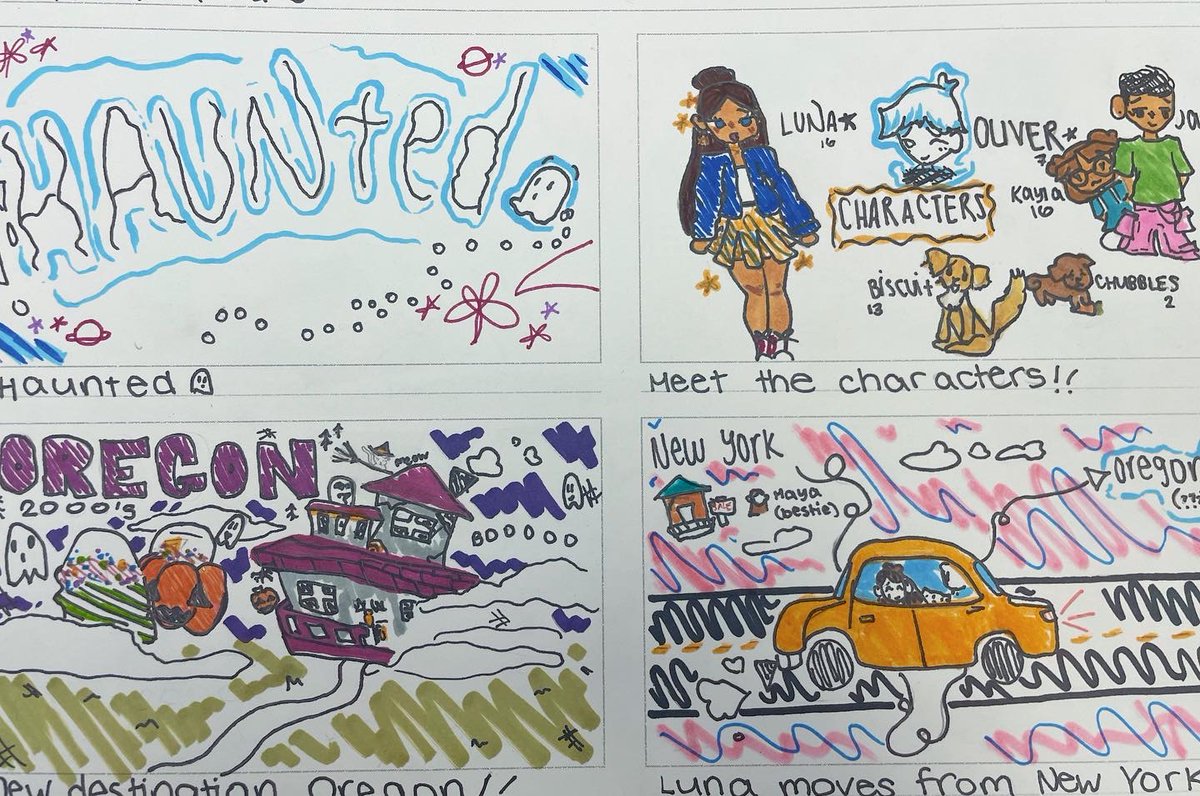 HAUNTED
Haunted
LUNA
16
OLIVER
7
Kayla
16
CHARACTERS
BiSCUit
13
CHUBBLES
2
Meet the characters!!
OREGON
2000's
meow
destination Oregon!!
New York
SALE
Maya
(bestie)
oregon
Luna moves from New York